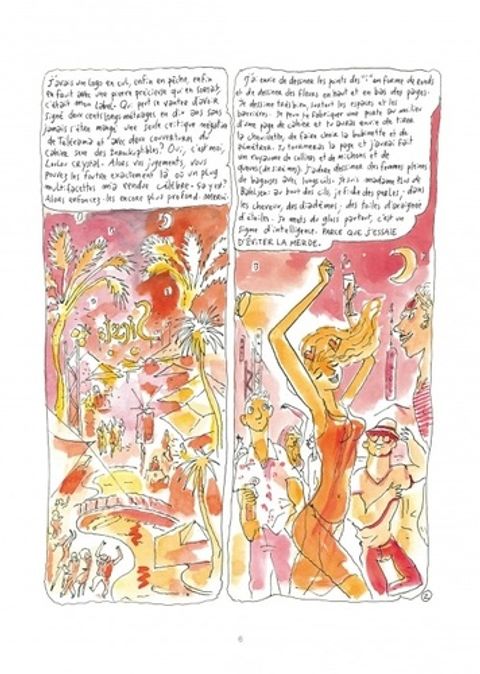 J'avais un logo en cul, enfin en pêche, enfin
en faut avec une pierre précieuse qui en sortait,
c'était mon label. Qui peut se vanter d'avoir
signé deux cents longs métrages en dix ans sans
jamais s'être mangé une seule critique négative
de Télérama et avec deux couvertures du
cahier sur des Inrockuptibles? Oui, c'est moi,
Crystal. Alors vos jugements, vous
pouvez les foutre exactement là où un plug
multifacettes m'a rendue célèbre. Ça y est?
Alors enfoncez-les encore plus profond.
J'ai envie de dessiner les points des "i" en forme de ronds
et de dessiner des fleurs en haut et en bas des pages.
Je dessine très bien, surtout les espaces et les
barrières. Je peux te fabriquer une porte au milieu
d'une page de cahier et tu auras envie de tirer
la chevillette, de faire choir la bobinette et de
pénétrer. Tu tourneras la page et j'aurai fait
un royaume de collines et de nichons et de
queues J'adore dessiner des femmes pleines
de bagouses avec longs cils. Je suis madame
au bout des cils, je fiche des perles, dans
les cheveux, des diadèmes, des toiles d'araignée
d'étoiles. Je mets du gloss partout, c'est un
signe d'intelligence. PARCE QUE J'ESSAIE
D'ÉVITER LA MERDE.
2
6